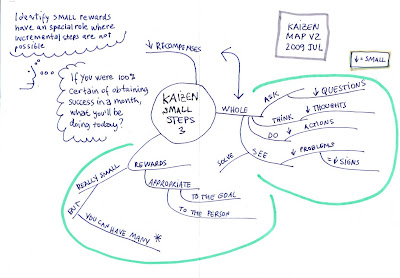 Identify SMALL rewards
have an special role where
incremental steps are not
possible
If you were 100%
Certain of obtaining
success in a month,
what you'll be
doing today?
↓ RECOMPENSES
KAIZEN
MAP V2
2009 JUL
↓ = SMALL
KAIZEN
SMALL
STEPS
3
WHOLE
ASK
↓ QUESTIONS
THINK
↓ THOUGHTS
DO
↓ ACTIONS
SEE
SOLVE
↓ PROBLEMS
= ↓ SIGNS
REWARDS
REALLY SMALL
APPROPRIATE
TO THE GOAL
TO THE PERSON
BUT
YOU CAN HAVE MANY *